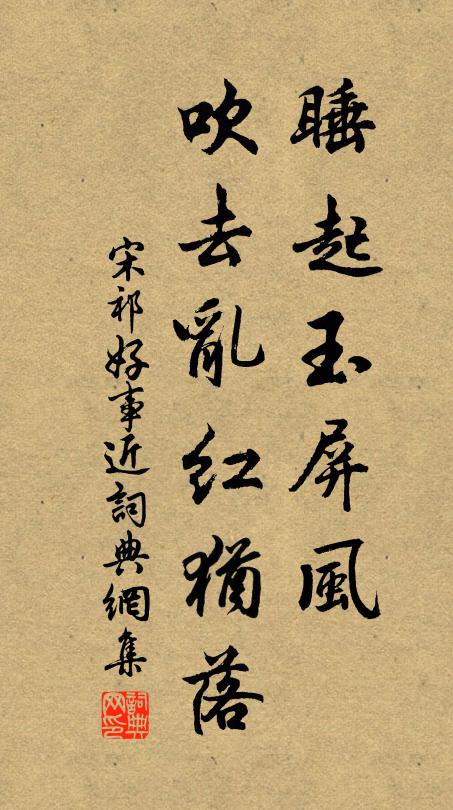 睡起玉屏風
吹去亂紅猶落
宋祁好事近詞典網集
詞典网印